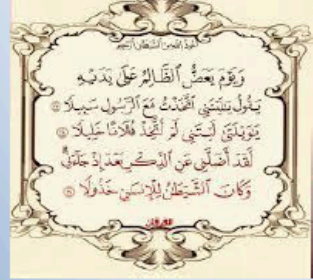 أعوذ بالله من الشيطان الرجيم
وَيَوْمَ يَعَضُّ ٱلظَّالِمُ عَلَىٰ يَدَيْهِ
يَقُولُ يَـٰلَيْتَنِي ٱتَّخَذْتُ مَعَ ٱلرَّسُولِ سَبِيلًا
يَـٰوَيْلَتَىٰ لَيْتَنِي لَمْ أَتَّخِذْ فُلَانًا خَلِيلًا
لَّقَدْ أَضَلَّنِي عَنِ ٱلذِّكْرِ بَعْدَ إِذْ جَآءَنِي
وَكَانَ ٱلشَّيْطَـٰنُ لِلْإِنسَـٰنِ خَذُولًا